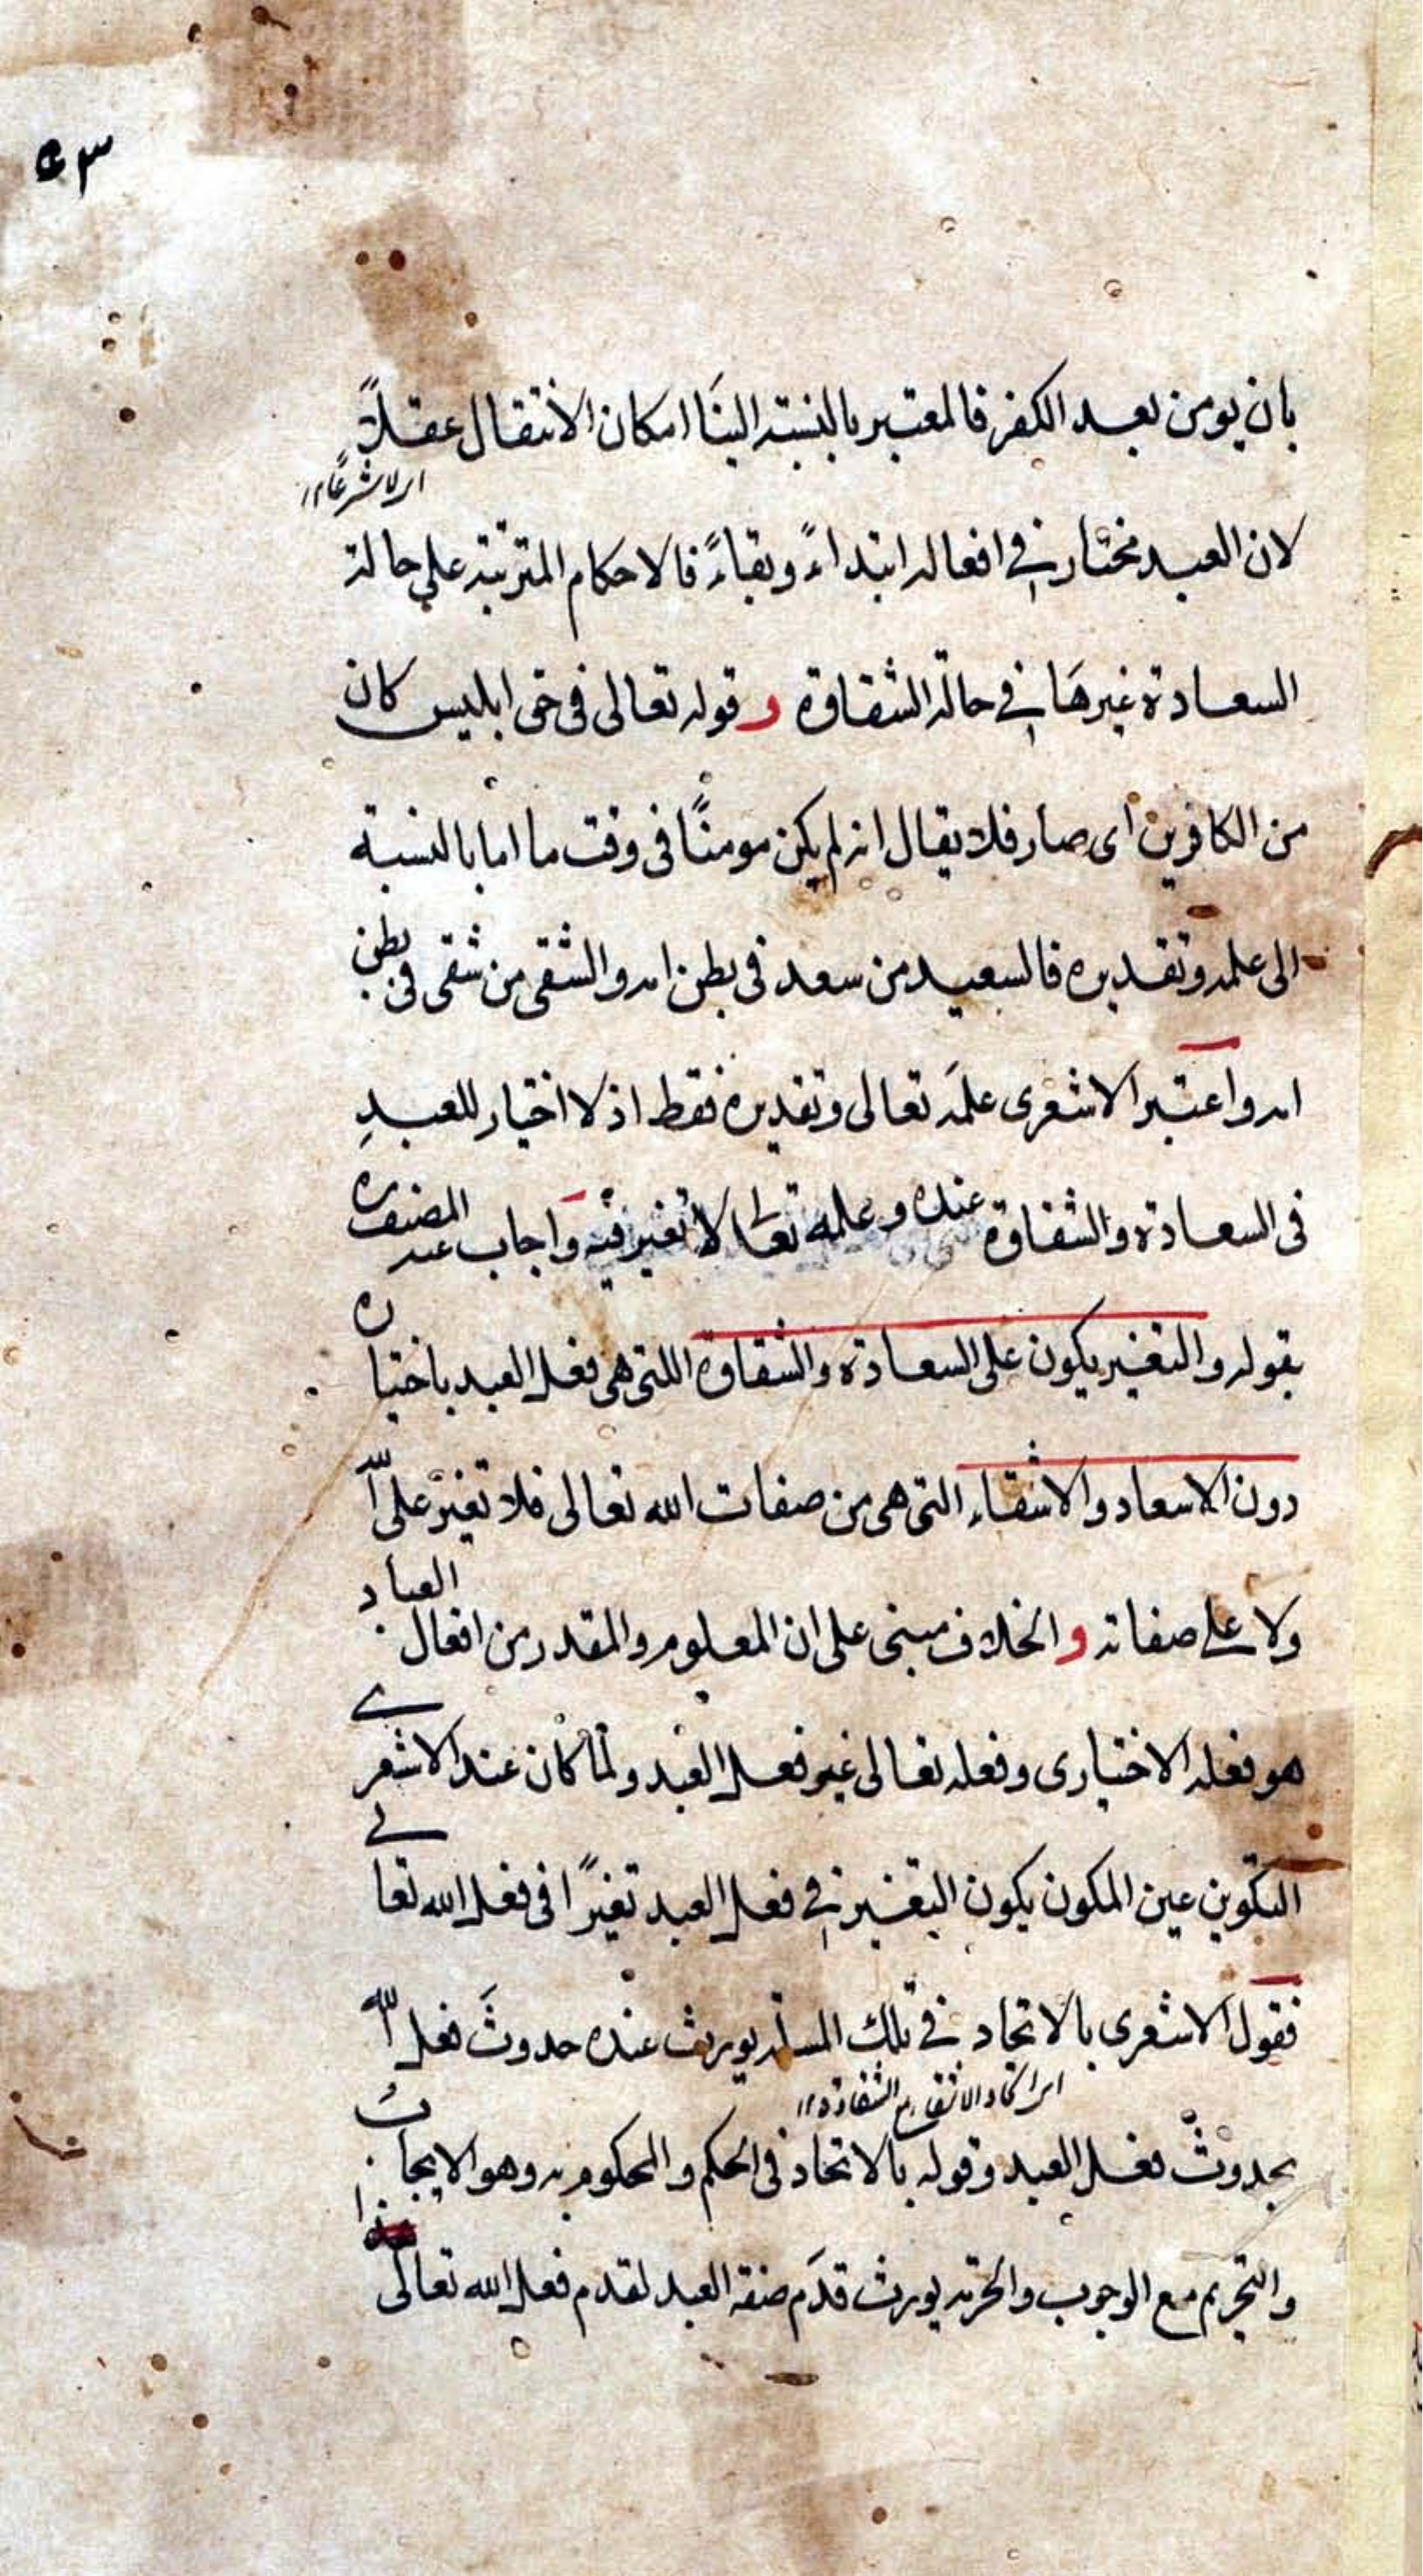 ٥٣
بان يومن بعد الكفر فالمعتبر بالنسبة الينا امكان الانتقال عقلاً
اى لا شرعًا ١٢
لان العبد مختار فى افعاله ابتداءً وبقاءً فالاحكام المترتبة على حالة
السعادة غيرها فى حالة الشقاوة و قوله تعالى فى حق ابليس كان
من الكافرين اى صار فلا يقال انه لم يكن مومنًا فى وقت ما اما بالنسبة
الى علمه وتقديره فالسعيد من سعد فى بطن امه والشقى من شقى فى بطن
امه واعتبر الاشعرى علمَه تعالى وتقديره فقط اذ لا اختيار للعبدِ
فى السعادة والشقاوة عنده وعلمه تعالى لا تغير فيه وَاجاب عنه المصنف ره
بقوله والتغير يكون على السعادة والشقاوة اللتى هى فعل العبد باختياره
دون الاسعاد والاشقاء التى هى من صفات الله تعالى فلا تغيّر على الله
ولا على صفاته و الخلاف مبنى على ان المعلوم والمقدر من افعال العباد
هو فعله الاختيارى وفعله تعالى غير فعل العبد ولما كان عند الاشعرى
التكوين عين المكون يكون التغير فى فعل العبد تغيرًا فى فعل الله تعالى
فقول الاشعرى بالاتحاد فى تلك المسئلة يورث عنده حدوثَ فعل الله
اى اتحاد الاشقاء مع الشقاوة ١٢
بحدوث فعل العبد وقوله بالاتحاد فى الحكم والمحكوم به وهو الايجاب
والتحريم مع الوجوب والحرمة يورث قدَم صفة العبد لقدم فعل الله تعالى هذا